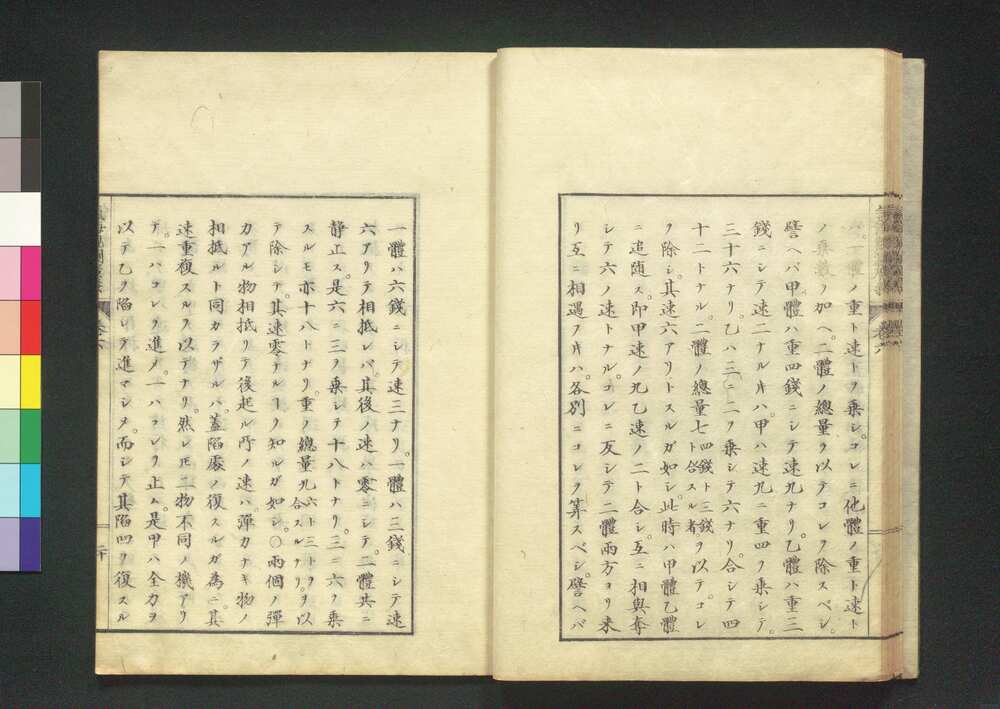 バ一體ノ重ト速トヲ乘シ。コレニ他體ノ重ト速ト
ノ乘數ヲ加ヘ。二體ノ總量ヲ以テコレヲ除スベシ。
譬ヘバ甲體ハ重四錢ニシテ速九ナリ。乙體ハ重三
錢ニシテ速二ナル片ハ。甲ハ速九ニ重四ヲ乘シテ。
三十六ナリ。乙ハ三ニ二ヲ乘シテ六ナリ。合シテ四
十二トナル。二體ノ總量七四錢ト三錢ト合スル者ヲ以テ。コレ
ヲ除シ。其速六アリトスルガ如シ。此時ハ甲體乙體
ニ追隨ス。即甲速ノ九乙速ノ二ト合シ。互ニ相與奪
シテ六ノ速トナル。コレニ反シテ二體兩方ヨリ來
リ互ニ相遇フ片ハ。各別ニコレヲ算スベシ。譬ヘバ
一體ハ六錢ニシテ速三ナリ。一體ハ三錢ニシテ速
六アリテ相抵レバ。其後ノ速ハ零ニシテ。二體共ニ
靜止ス。是六ニ三ヲ乘シテ十八トナリ。三ニ六ヲ乘
スルモ亦十八トナリ。重ノ總量九六ト三トヲ合スルナリヲ以
テ除シテ。其速零ナルヿヲ知ルガ如シ。○兩個ノ彈
力アル物相抵リテ後起ル所ノ速ハ。彈力ナキ物ノ
相抵ルト同カラザルハ。蓋陷處ノ復スルガ為ニ。其
速重複スルヲ以テナリ。然レ𪜈二物不同ノ機アリ
テ。一ハコレヲ進メ。一ハコレヲ止ム。是甲ハ全力ヲ
以テ乙ヲ陷凹シテ進マシメ。而シテ其陷凹ヲ復スル
卷六
二十